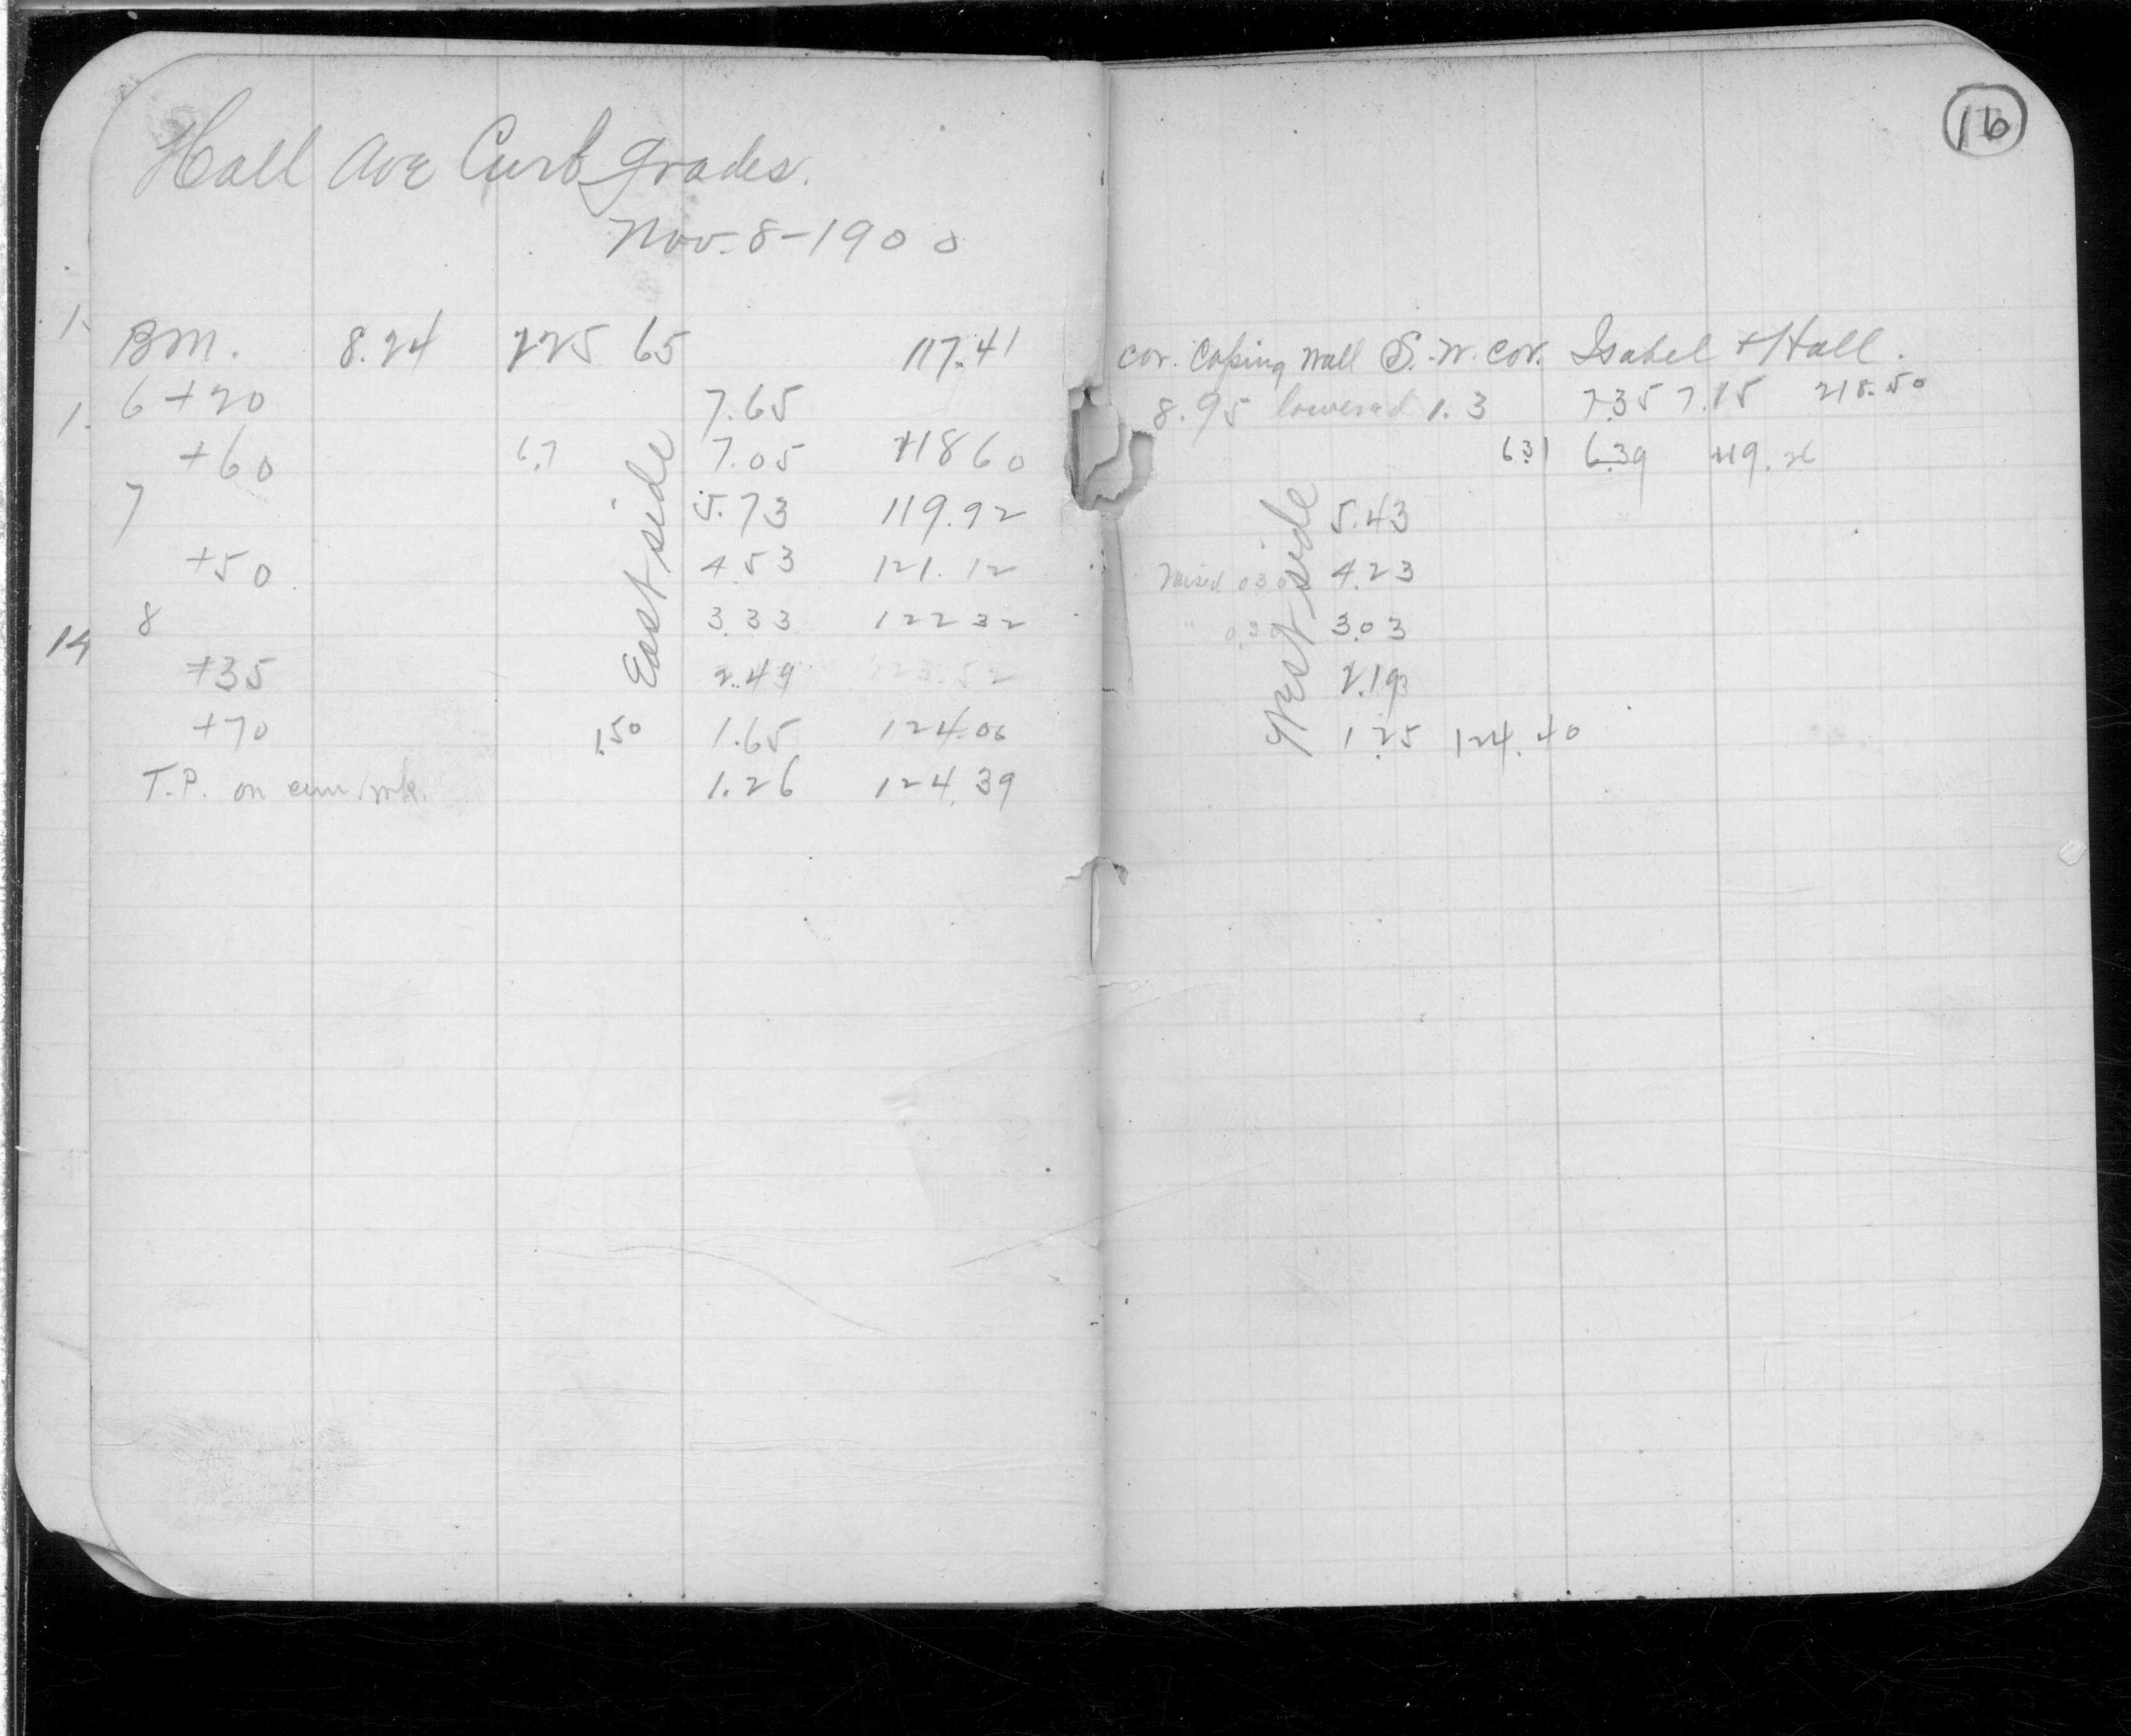 16
Hall Ave Curb grades.
Nov. 8-1900
BM. 8.24 225 65 117.41 cor. Coping Wall S.W. cor. Isabel + Hall.
6+20 7.65 8.95 lowered 1.3 7.35 7.15 218.50
+60 6.7 7.05 11860 6.31 6.39 119.26
7 5.73 119.92 5.43
+50 4.53 121.12 raised 030 4.23
8 3.33 122 32 " 0.30 3.03
+35 2.49 123.52 2.19
+70 1.50 1.65 124.06 1.25 124.40
T.P. on 1.26 124.39
East side
West side
1
1.
14